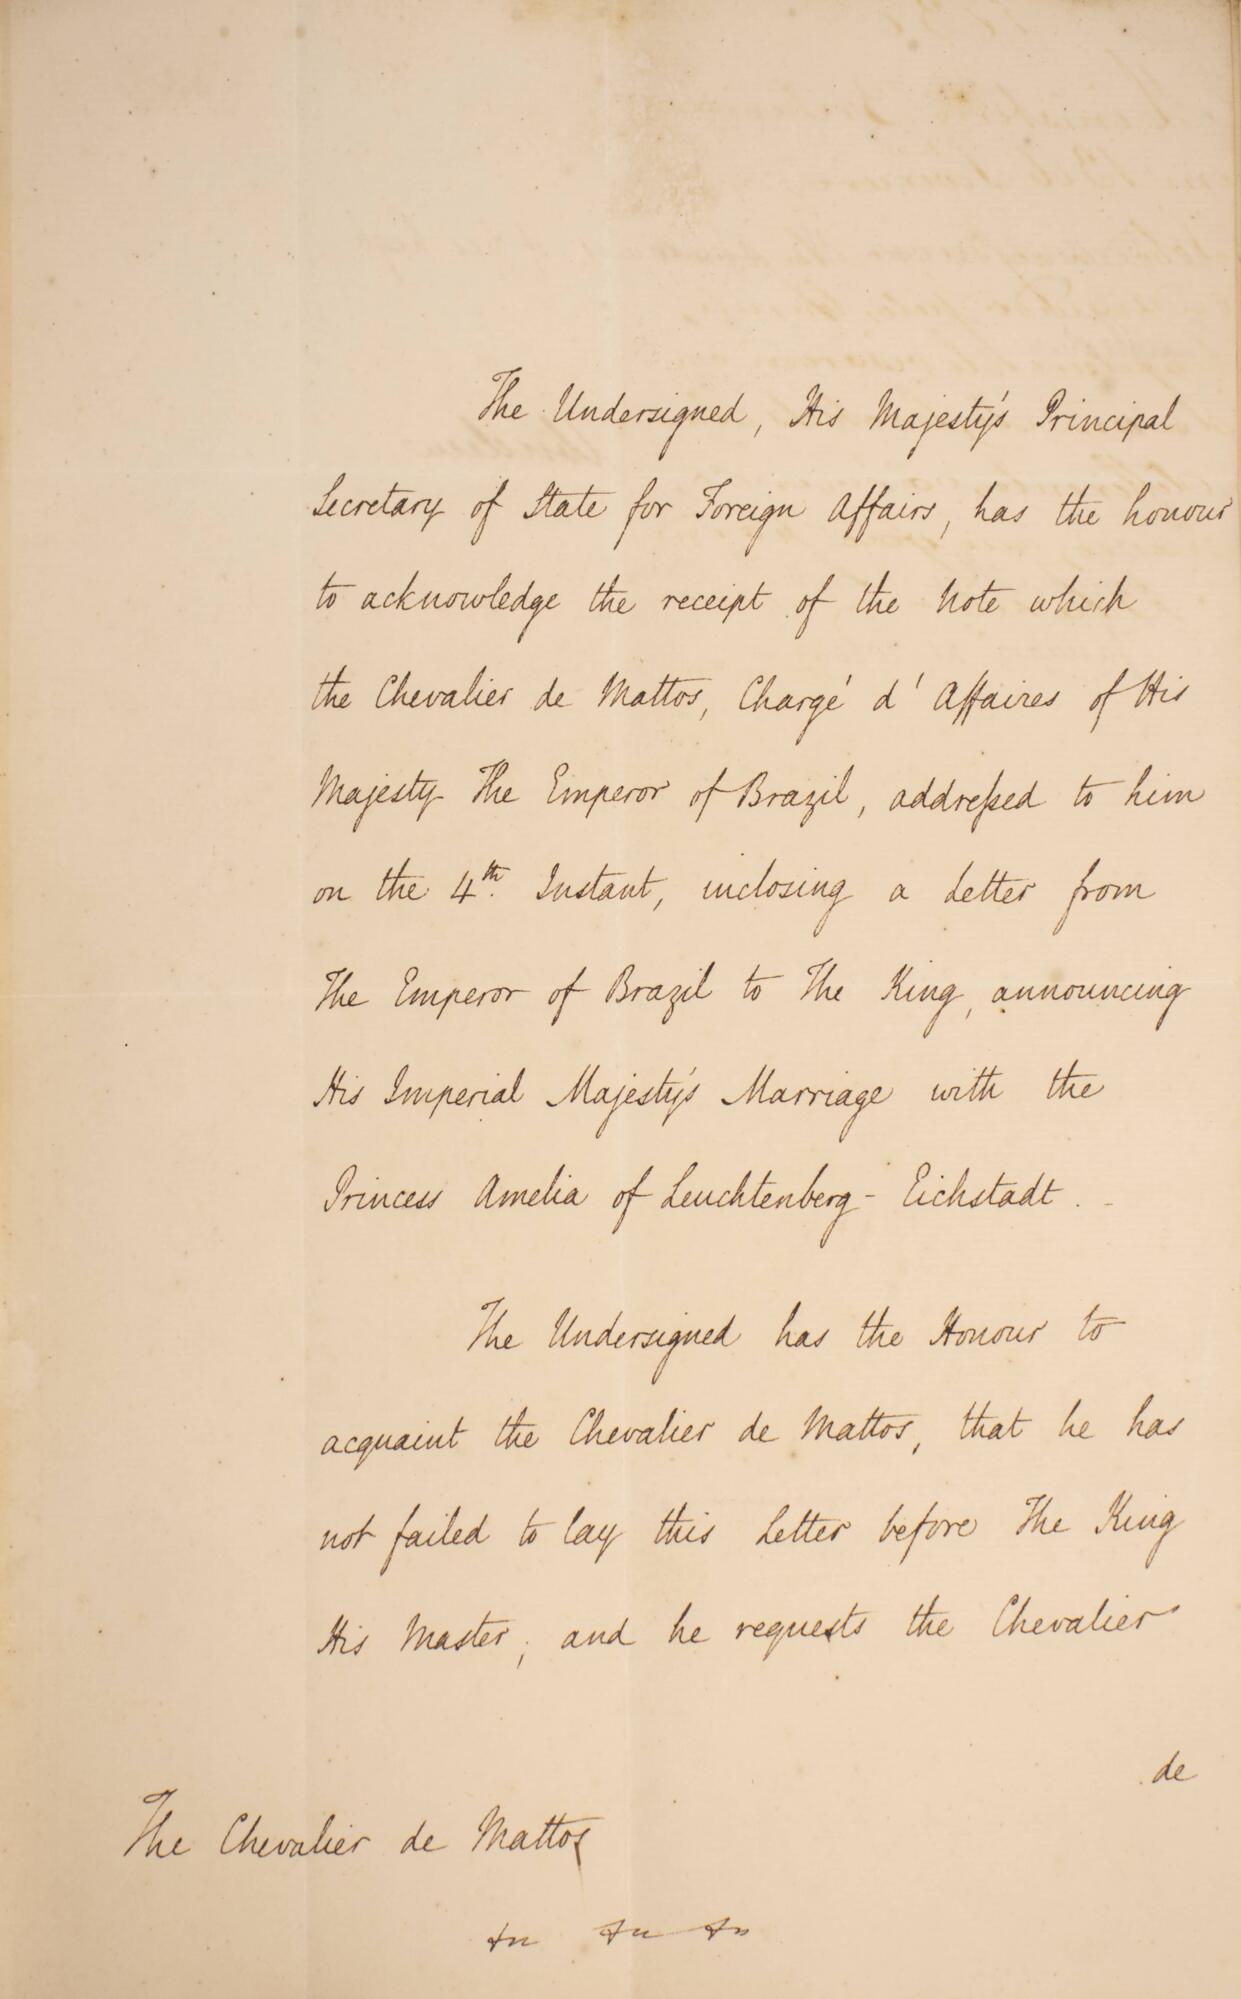 The Undersigned, His Majesty's Principal
Secretary of State for Foreign Affairs, has the honour
to acknowledge the receipt of the Note which
the Chevalier de Mattos, Chargé d'Affaires of His
Majesty The Emperor of Brazil, addreſsed to him
on the 4th. Instant, inclosing a Letter from
The Emperor of Brazil to The King, announcing
His Imperial Majesty's Marriage with the
Princess Amelia of Leuchtenberg-Eichstadt.
The Undersigned has the Honour to
acquaint the Chevalier de Mattos, that he has
not failed to lay this Letter before The King
His Master; and he requests the Chevalier
de
The Chevalier de Mattos